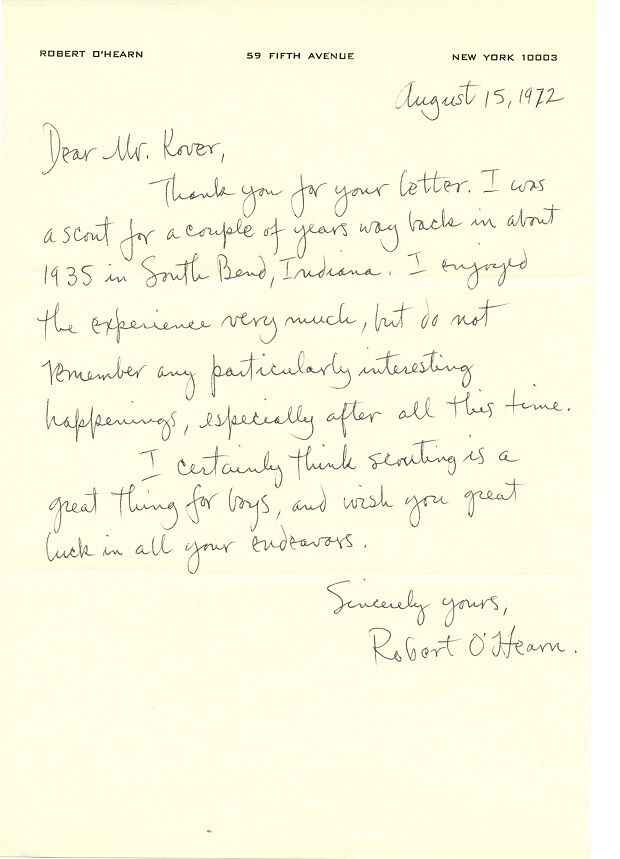 ROBERT O'HEARN 59 FIFTH AVENUE NEW YORK 10003
August 15, 1972
Dear Mr. Kover,
Thank you for your letter. I was
a scout for a couple of years way back in about
1935 in South Bend, Indiana. I enjoyed
the experience very much, but do not
remember any particularly interesting
happenings, especially after all this time.
I certainly think scouting is a
great thing for boys, and wish you great
luck in all your endeavors.
Sincerely yours,
Robert O'Hearn.